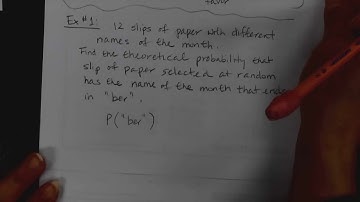 favor
Ex #1: 12 slips of paper with different
names of the month.
Find the theoretical probability that
slip of paper selected at random
has the name of the month that ends
in "ber".
P("ber")